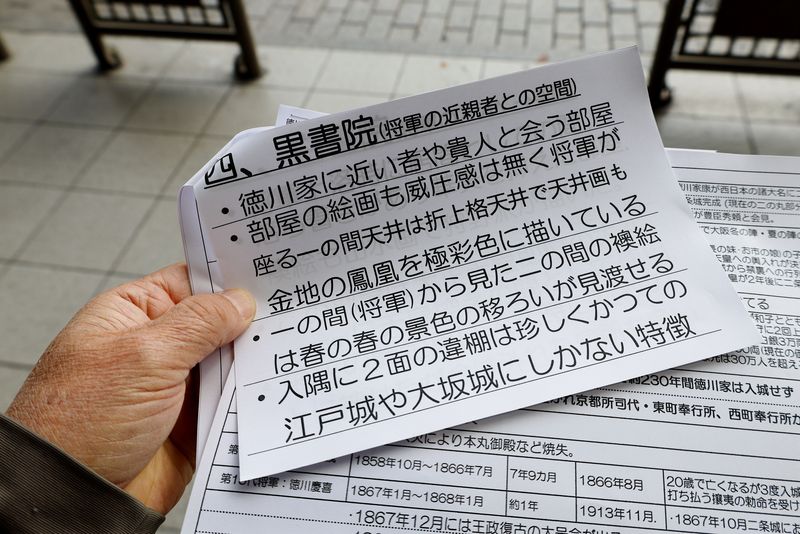 四、黒書院(将軍の近親者との空間)
・徳川家に近い者や貴人と会う部屋
・部屋の絵画も威圧感は無く将軍が
座る一の間天井は折上格天井で天井画も
金地の鳳凰を極彩色に描いている
・一の間(将軍)から見た二の間の襖絵
は春の春の景色の移ろいが見渡せる
・入隅に2面の違棚は珍しくかつての
江戸城や大坂城にしかない特徴
徳川家康が西日本の諸大名に
城完成(現在の二の丸部分
が豊臣秀頼と会見。
で大阪冬の陣・夏の陣の
約230年間徳川家は入城せず
京都所司代・東町奉行所、西町奉行所が
により本丸御殿など焼失。
1858年10月〜1866年7月 7年9カ月 1866年8月 20歳で亡くなるが3度入城
打ち払う攘夷の勅命を受け
将軍：徳川慶喜 1867年1月〜1868年1月 約1年 1913年11月. ・1867年10月二条城に
・1867年12月には王政復古の大号令が